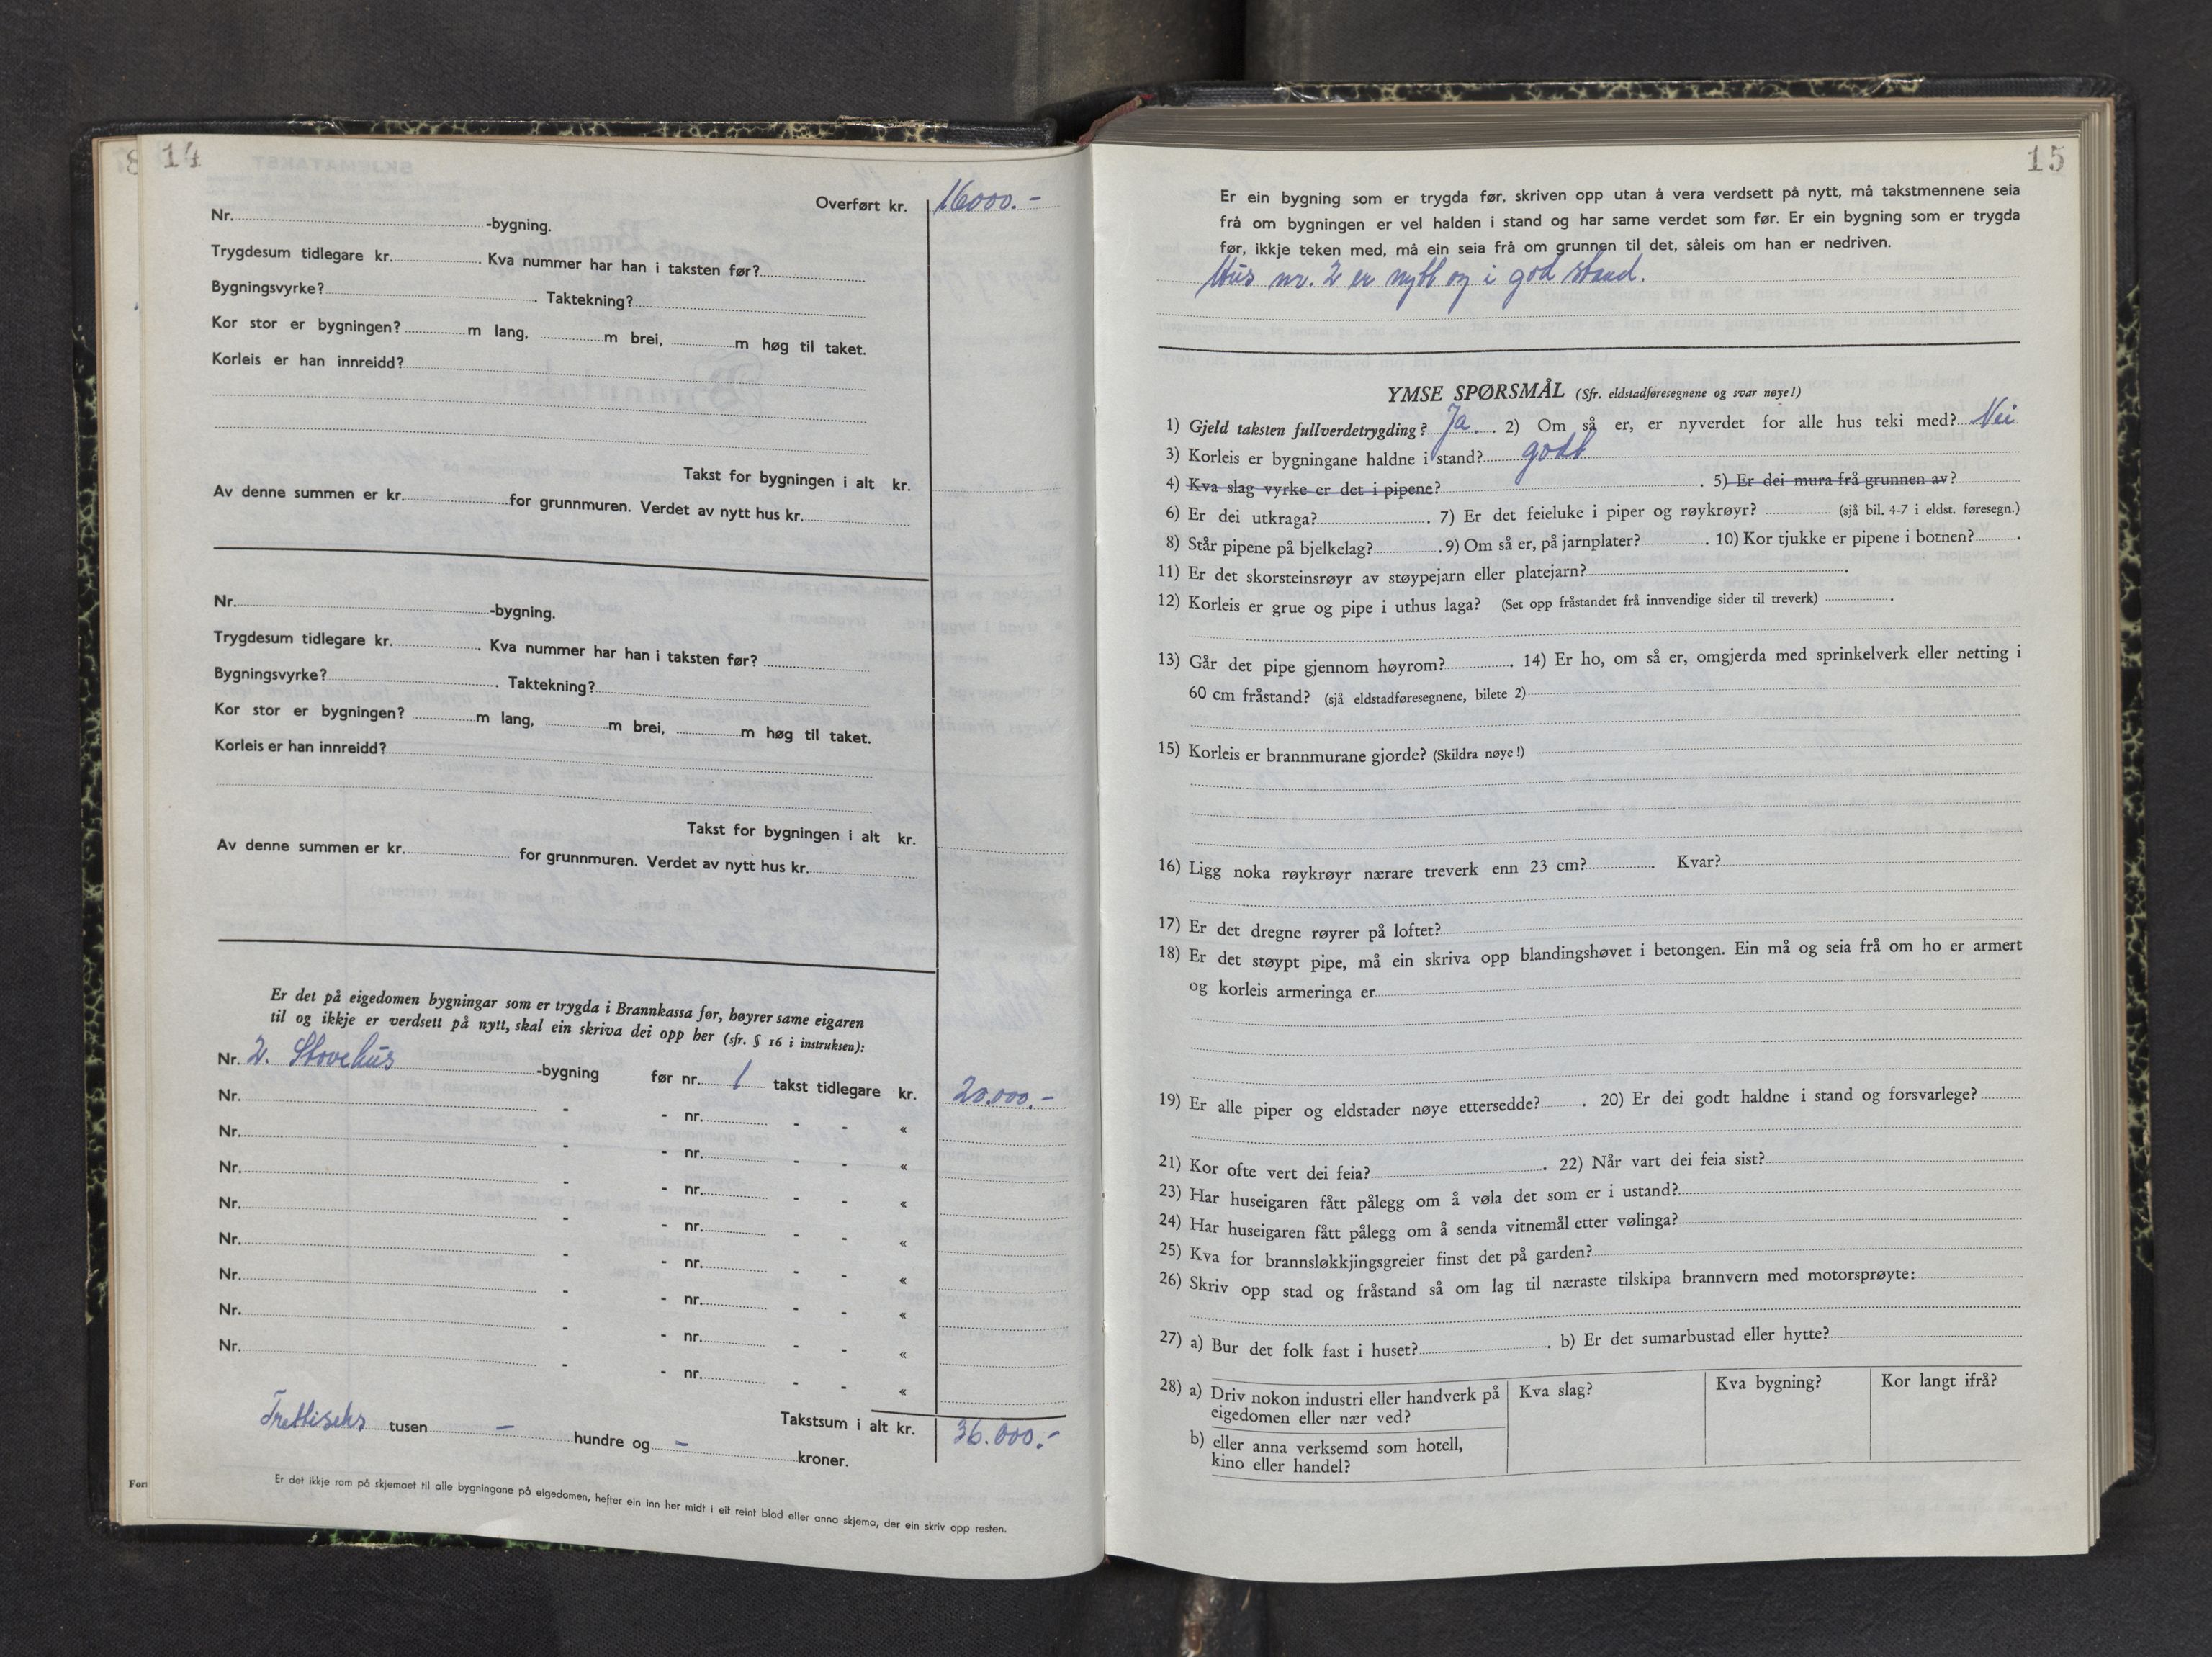 14
Overført kr. 16000.-
Nr. -bygning.
Trygdesum tidlegare kr. . Kva nummer har han i taksten før?
Bygningsvyrke? . Taktekning?
Kor stor er bygningen? m lang, m brei, m høg til taket.
Korleis er han innreidd?
Takst for bygningen i alt kr.
Av denne summen er kr. for grunnmuren. Verdet av nytt hus kr.
Nr. -bygning.
Trygdesum tidlegare kr. . Kva nummer har han i taksten før?
Bygningsvyrke? . Taktekning?
Kor stor er bygningen? m lang, m brei, m høg til taket.
Korleis er han innreidd?
Takst for bygningen i alt kr.
Av denne summen er kr. for grunnmuren. Verdet av nytt hus kr.
Er det på eigedomen bygningar som er trygda i Brannkassa før, høyrer same eigaren
til og ikkje er verdsett på nytt, skal ein skriva dei opp her (sfr. § 16 i instruksen):
Nr. 2. Stovehus -bygning før nr. 1 takst tidlegare kr. 20.000.-
Nr. - - nr. - - «
Nr. - - nr. - - «
Nr. - - nr. - - «
Nr. - - nr. - - «
Nr. - - nr. - - «
Nr. - - nr. - - «
Nr. - - nr. - - «
Nr. - - nr. - - «
Takstsum i alt kr. 36.000.-
Trettiseks tusen - hundre og - kroner.
Er det ikkje rom på skjemaet til alle bygningane på eigedomen, hefter ein inn her midt i eit reint blad eller anna skjema, der ein skriv opp resten.
15
Er ein bygning som er trygda før, skriven opp utan å vera verdsett på nytt, må takstmennene seia
frå om bygningen er vel halden i stand og har same verdet som før. Er ein bygning som er trygda
før, ikkje teken med, må ein seia frå om grunnen til det, såleis om han er nedriven.
Hus nr. 2 er nytt og i god stand.
YMSE SPØRSMÅL (Sfr. eldstadføresegnene og svar nøye!)
1) Gjeld taksten fullverdetrygding? Ja. . 2) Om så er, er nyverdet for alle hus teki med? Nei
3) Korleis er bygningane haldne i stand? godt
4) Kva slag vyrke er det i pipene? . 5) Er dei mura frå grunnen av?
6) Er dei utkraga? . 7) Er det feieluke i piper og røykrøyr? (sjå bil. 4-7 i eldst. føresegn.)
8) Står pipene på bjelkelag? . 9) Om så er, på jarnplater? . 10) Kor tjukke er pipene i botnen? .
11) Er det skorsteinsrøyr av støypejarn eller platejarn? .
12) Korleis er grue og pipe i uthus laga? (Set opp fråstandet frå innvendige sider til treverk) .
13) Går det pipe gjennom høyrom? . 14) Er ho, om så er, omgjerda med sprinkelverk eller netting i
60 cm fråstand? (sjå eldstadføresegnene, bilete 2)
15) Korleis er brannmurane gjorde? (Skildra nøye!)
16) Ligg noka røykrøyr nærare treverk enn 23 cm? . Kvar?
17) Er det dregne røyrer på loftet?
18) Er det støypt pipe, må ein skriva opp blandingshøvet i betongen. Ein må og seia frå om ho er armert
og korleis armeringa er
19) Er alle piper og eldstader nøye ettersedde? . 20) Er dei godt haldne i stand og forsvarlege?
21) Kor ofte vert dei feia? . 22) Når vart dei feia sist?
23) Har huseigaren fått pålegg om å vøla det som er i ustand?
24) Har huseigaren fått pålegg om å senda vitnemål etter vølinga?
25) Kva for brannsløkkjingsgreier finst det på garden?
26) Skriv opp stad og fråstand så om lag til næraste tilskipa brannvern med motorsprøyte:
27) a) Bur det folk fast i huset? . b) Er det sumarbustad eller hytte?
28) a) Driv nokon industri eller handverk på
eigedomen eller nær ved?
b) eller anna verksemd som hotell,
kino eller handel?
Kva slag?
Kva bygning?
Kor langt ifrå?